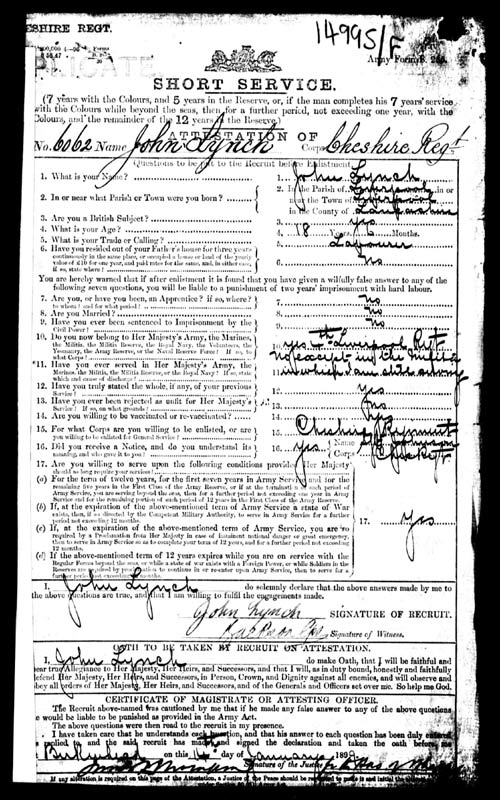 ESHIRE REGT.
14995/F
Army Form B.
SHORT SERVICE.
(7 years with the Colours, and 5 years in the Reserve, or, if the man completes his 7 years' service
with the Colours while beyond the seas, then for a further period, not exceeding one year, with the
Colours, and the remainder of the 12 years in the Reserve.)
ATTESTATION OF
No. 6062 Name John Lynch Corps Cheshire Regt
Questions to be put to the Recruit before Enlistment.
1. What is your Name? 1. John Lynch
2. In or near what Parish or Town were you born? 2. In the Parish of Liverpool in or
near the Town of Liverpool
in the County of
3. Are you a British Subject? 3. Yes
4. What is your Age? 4. 18 Years 6 Months.
5. What is your Trade or Calling? 5. Labourer
6. Have you resided out of your Father's house for three years
continuously in the same place, or occupied a house or land of the yearly
value of £10 for one year, and paid rates for the same, and, in either case,
if so, state where? 6. No
You are hereby warned that if after enlistment it is found that you have given a wilfully false answer to any of the
following seven questions, you will be liable to a punishment of two years' imprisonment with hard labour.
7. Are you, or have you been, an Apprentice? if so, where?
to whom? and for what period? 7. No
8. Are you Married? 8. No
9. Have you ever been sentenced to Imprisonment by the
Civil Power? 9. No
10. Do you now belong to Her Majesty's Army, the Marines,
the Militia, the Militia Reserve, the Royal Navy, the Volunteers, the
Yeomanry, the Army Reserve, or the Naval Reserve Force? If so, to
what Corps? 10. yes Liverpool Regt
*11. Have you ever served in Her Majesty's Army, the
Marines, the Militia, the Militia Reserve, or the Royal Navy? If so, state
which and cause of discharge 11. No except in the Militia
in which I am still serving
12. Have you truly stated the whole, if any, of your previous
Service? 12. Yes
13. Have you ever been rejected as unfit for Her Majesty's
Service? If so, on what grounds? 13. No
14. Are you willing to be vaccinated or re-vaccinated? 14. Yes
15. For what Corps are you willing to be enlisted, or are
you willing to be enlisted for General Service? 15. Cheshire Regiment
16. Did you receive a Notice, and do you understand its
meaning, and who gave it to you? 16. Yes Name
Corps
17. Are you willing to serve upon the following conditions provided Her Majesty
should so long require your services?
(a) For the term of twelve years, for the first seven years in Army Service and for the
remaining five years in the First Class of the Army Reserve, or if at the termination of such period of
Army Service, you are serving beyond the seas, then for a further period not exceeding one year in Army
Service and for the remaining portion of such period of 12 years in the First Class of the Army Reserve.
(b) If, at the expiration of the above-mentioned term of Army Service a state of War
exists, then, if so directed by the Competent Military Authority, to serve in Army Service for a further
period not exceeding 12 months.
(c) If, at the expiration of the above-mentioned term of Army Service, you are so
required by a Proclamation from Her Majesty in case of imminent national danger or great emergency,
then to serve in Army Service so as to complete your term of 12 years, and for a further period not exceeding
12 months.
(d) If the above-mentioned term of 12 years expires while you are on service with the
Regular Forces beyond the seas, or while a state of war exists with a Foreign Power, or while Soldiers in the
Reserve are required by proclamation to continue in or re-enter upon Army Service, then to serve for a
further period not exceeding 12 months.
17. Yes
I, John Lynch do solemnly declare that the above answers made by me to
the above questions are true, and that I am willing to fulfil the engagements made.
John Lynch SIGNATURE OF RECRUIT.
Signature of Witness.
OATH TO BE TAKEN BY RECRUIT ON ATTESTATION.
I, John Lynch do make Oath, that I will be faithful and
bear true Allegiance to Her Majesty, Her Heirs, and Successors, and that I will, as in duty bound, honestly and faithfully
defend Her Majesty, Her Heirs, and Successors, in Person, Crown, and Dignity against all enemies, and will observe and
obey all orders of Her Majesty, Her Heirs, and Successors, and of the Generals and Officers set over me. So help me God.
CERTIFICATE OF MAGISTRATE OR ATTESTING OFFICER.
The Recruit above-named was cautioned by me that if he made any false answer to any of the above questions
he would be liable to be punished as provided in the Army Act.
The above questions were then read to the recruit in my presence.
I have taken care that he understands each question, and that his answer to each question has been duly entered
as replied to and the said recruit has made and signed the declaration and taken the oath before me
Birkenhead on this day of January 189
Signature of the Justice
If any alteration is required on this page of the Attestation, a Justice of the Peace should be requested to make it and initial